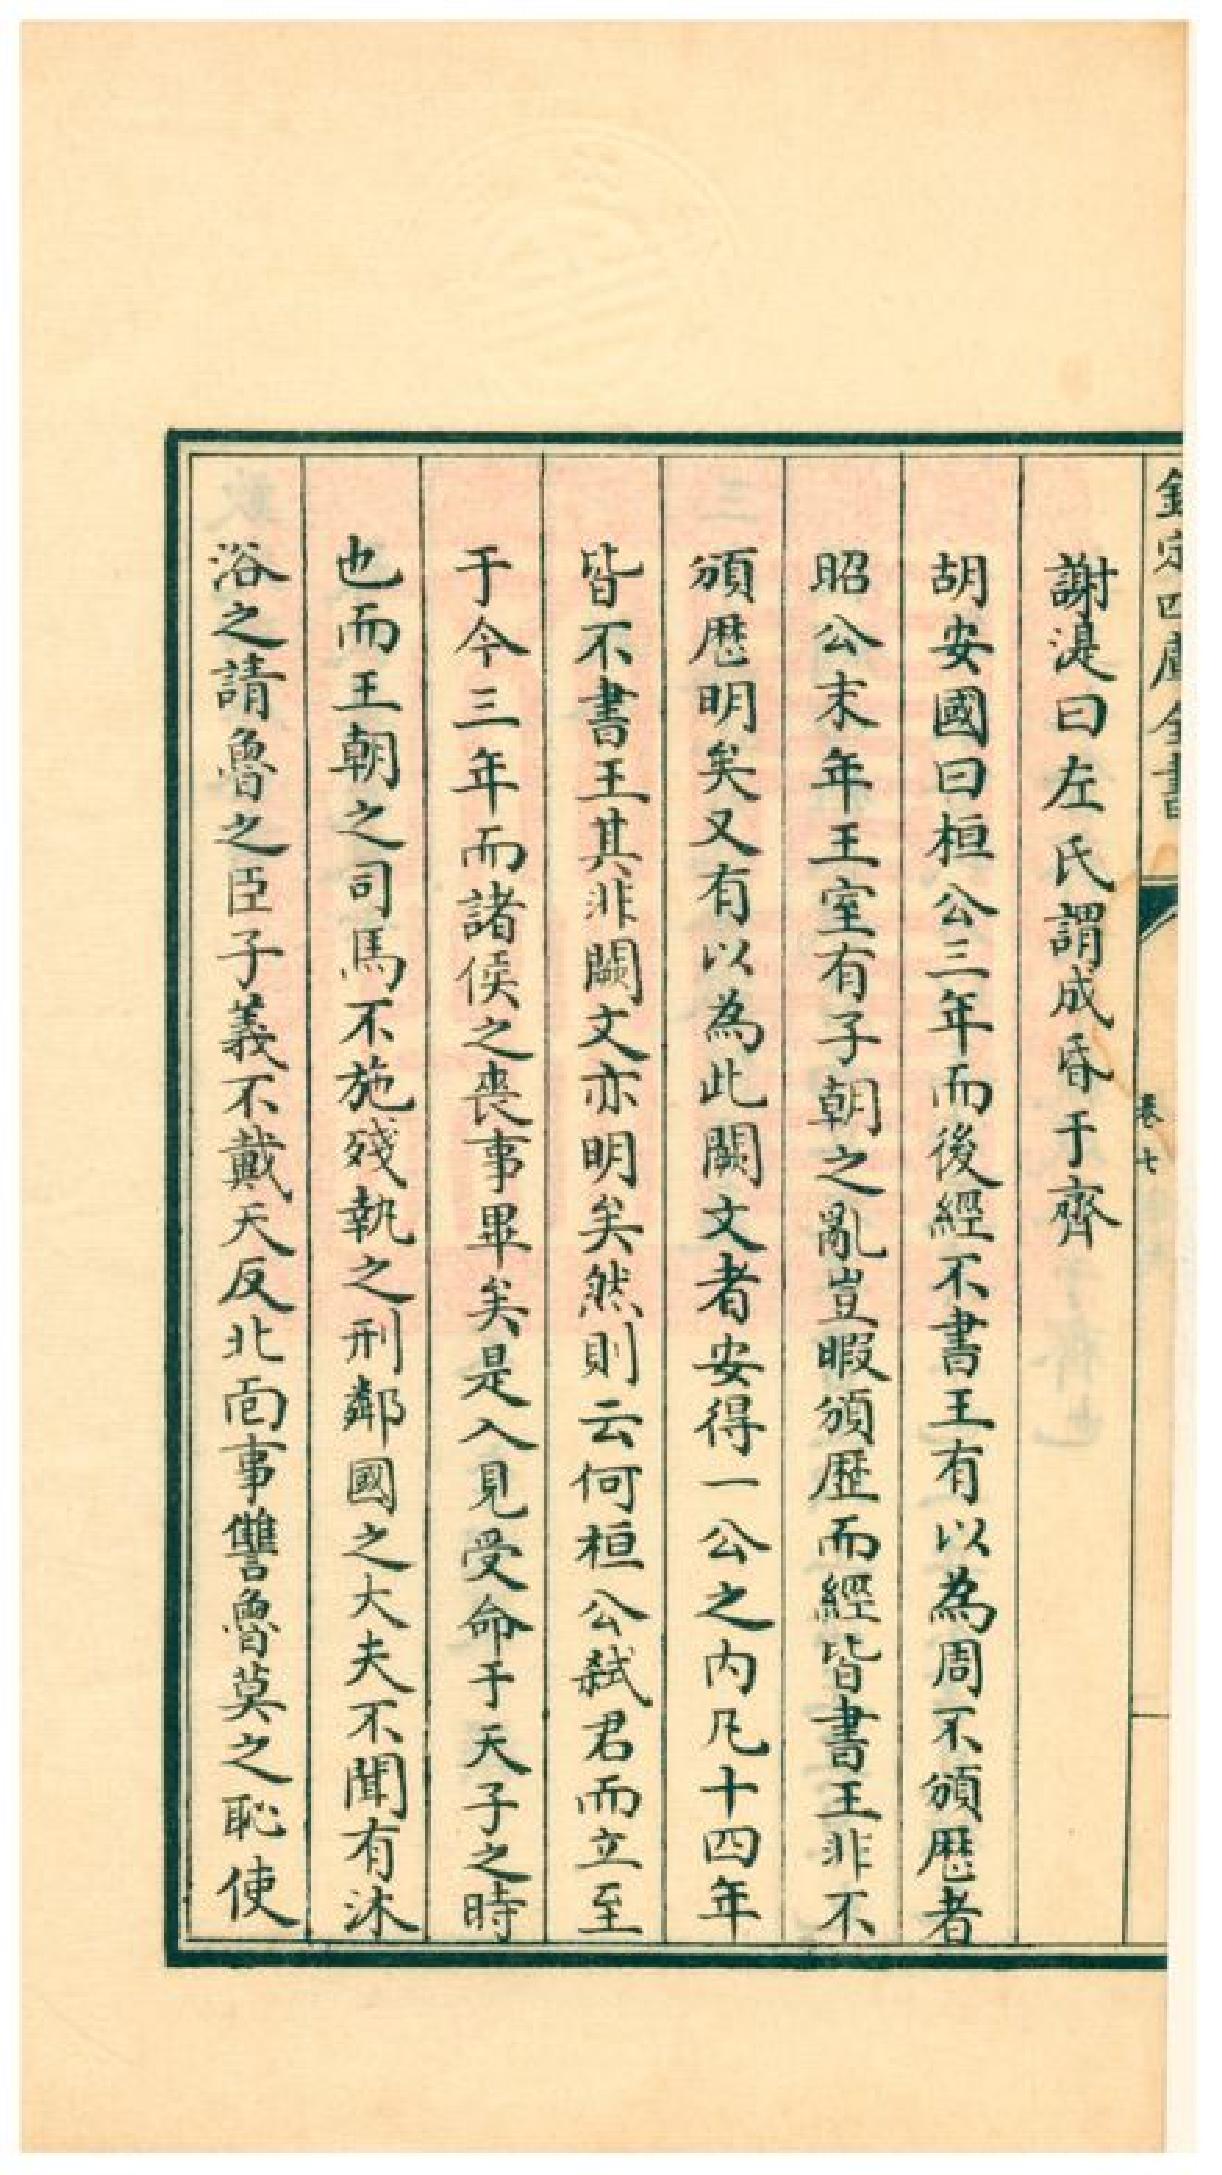 欽定四庫全書
卷七
謝湜曰左氏謂成昏于齊
胡安國曰桓公三年而後經不書王有以為周不頒歴者
昭公末年王室有子朝之亂豈暇頒歴而經皆書王非不
頒歴明矣又有以為此闕文者安得一公之内凡十四年
皆不書王其非闕文亦明矣然則云何桓公弑君而立至
于今三年而諸侯之喪事畢矣是入見受命于天子之時
也而王朝之司馬不施殘執之刑鄰國之大夫不聞有沐
浴之請魯之臣子義不戴天反北面事讐魯莫之恥使